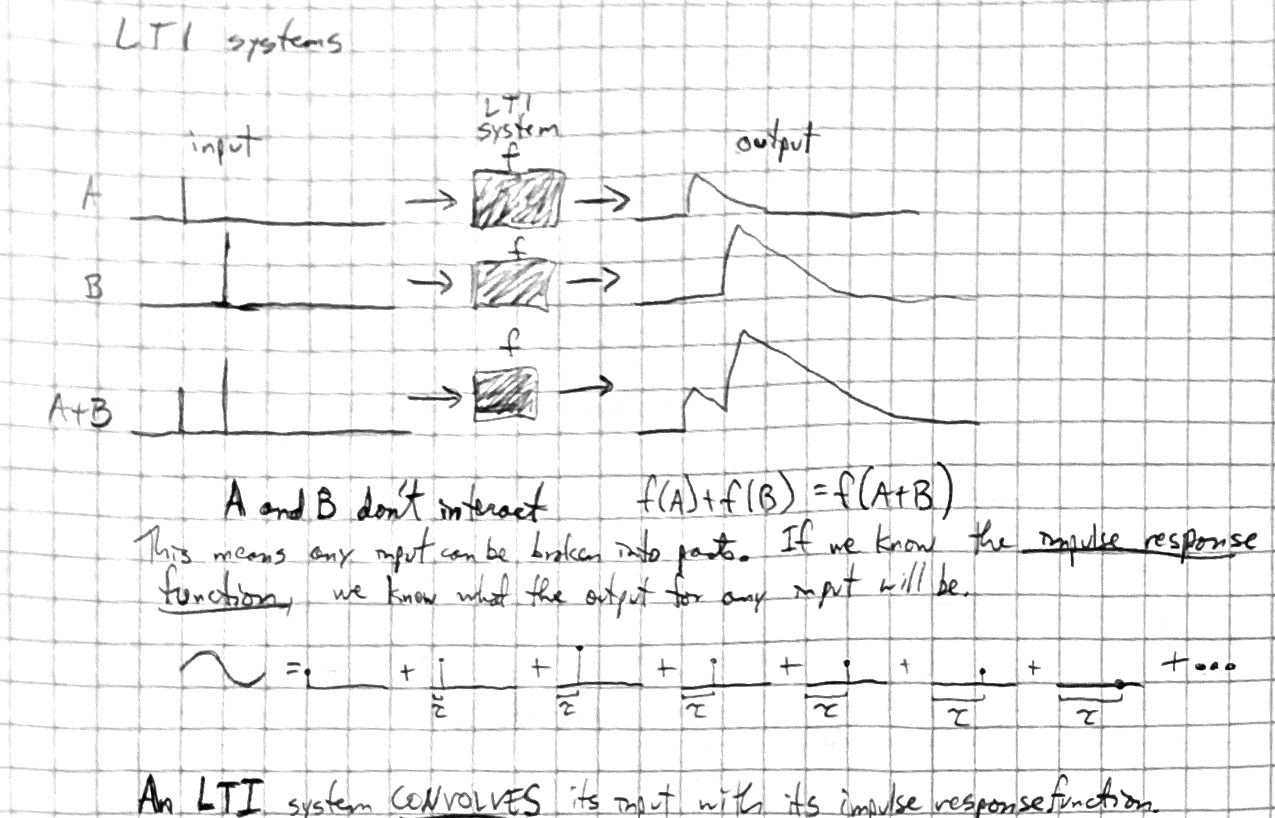 LTI systems
LTI
system
input
f
output
A
f
B
f
A+B
A and B don't interact f(A)+f(B) = f(A+B)
This means any input can be broken into parts. If we know the impulse response
function, we know what the output for any input will be.
= + + + + + + +...
τ τ τ τ τ τ
An LTI system CONVOLVES its input with its impulse response function.